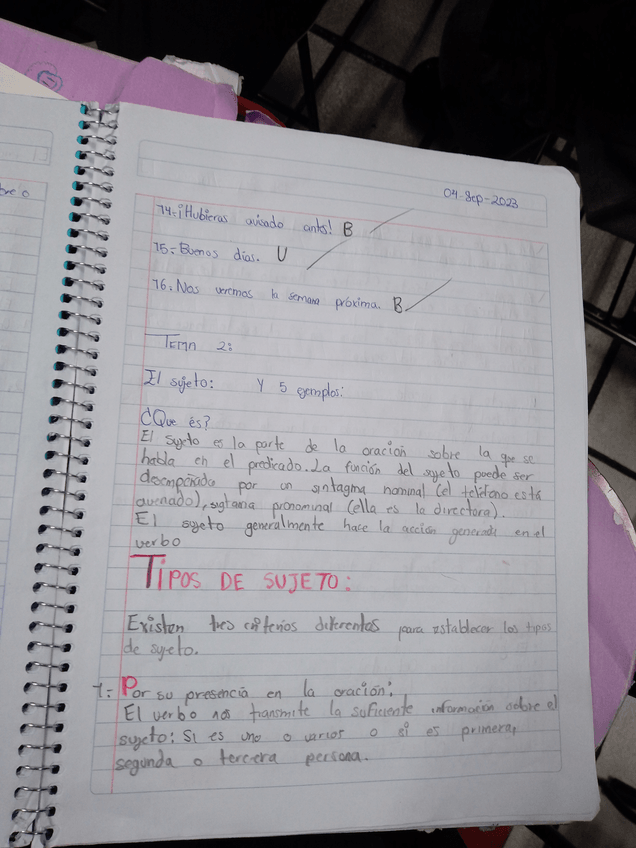 bre o
04-Sep-2023
14:¡Hubieras avisado antes! B
15:Buenos dias. U
16:Nos veremos la semana próxima. B
Tema 2:
El sujeto: Y 5 ejemplos:
¿Que és?
El sujeto es la parte de la oración sobre la que se
habla en el predicado. La función del sujeto puede ser
desempeñado por un sintagma nominal (el teléfono está
averiado), sigtama pronominal (ella es la directora).
El sujeto generalmente hace la acción generada en el
verbo
TIPOS DE SUJETO:
Existen tres criterios diferentes para establecer los tipos
de sujeto.
1: Por su presencia en la oración:
El verbo nos transmite la suficiente información sobre el
sujeto: Si es uno o varios o si es primera,
segunda o tercera persona.